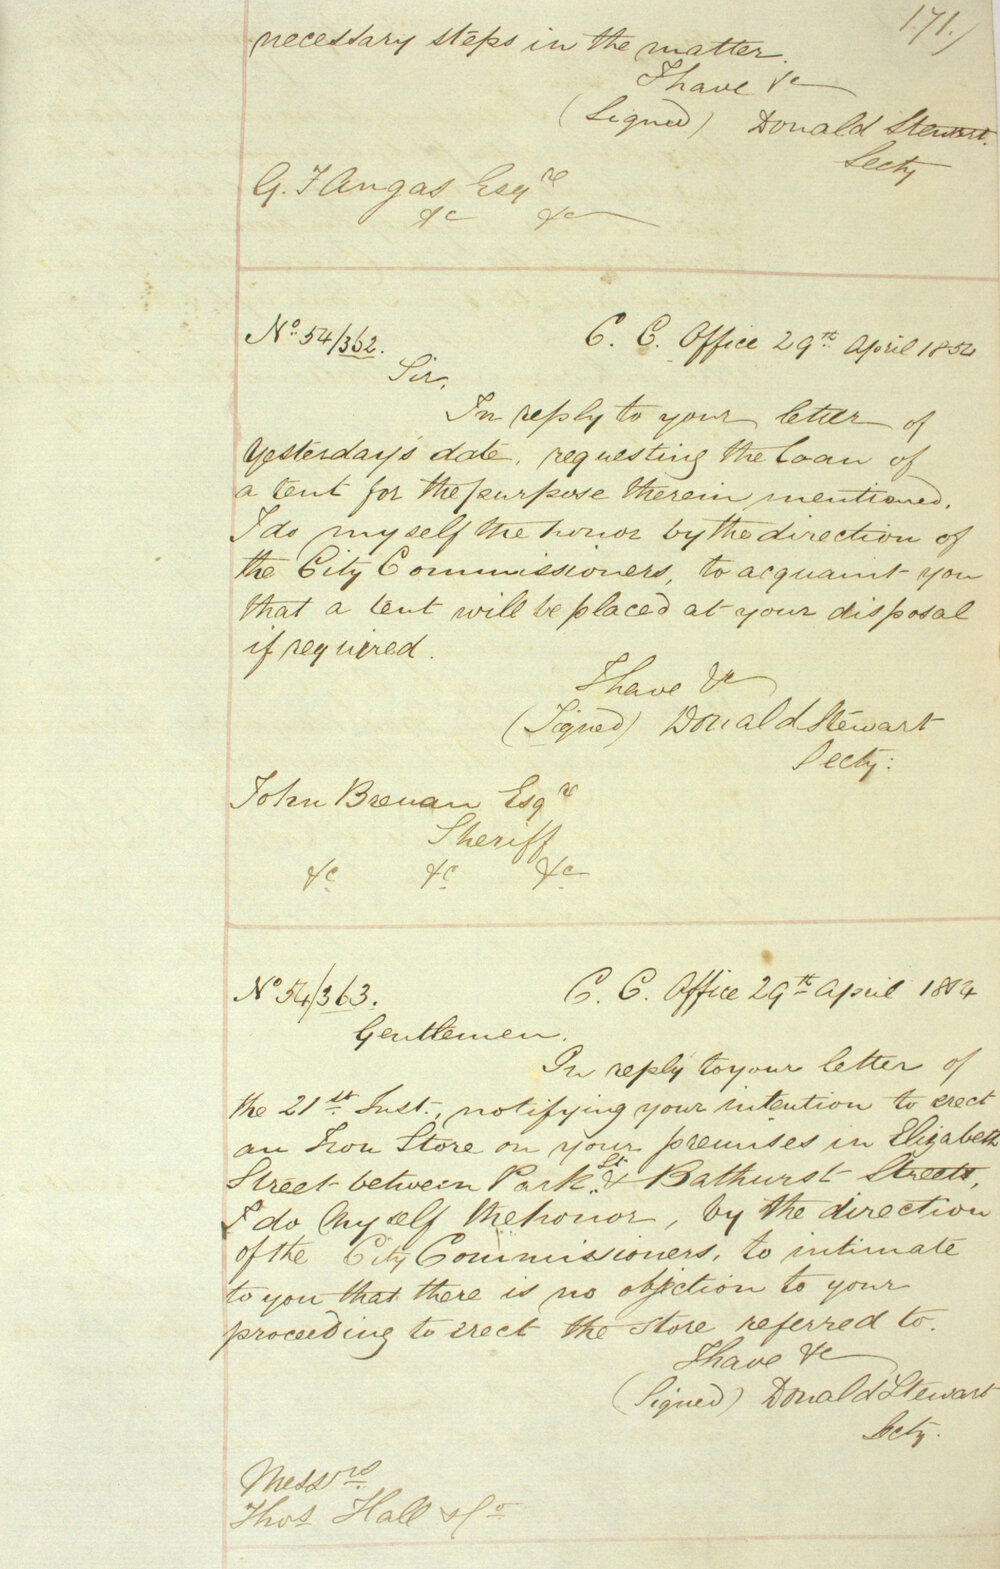 171.
necessary steps in the matter.
I have &c
(Signed) Donald Stewart.
Secty
G. F Angas Esqre
&c &c
No. 54/362. C. C. Office 29th April 1854
Sir,
In reply to your letter of
yesterday's date, requesting the loan of
a tent for the purpose therein mentioned,
I do myself the honor by the direction of
the City Commissioners, to acquaint you
that a tent will be placed at your disposal
if required.
I have &c
(Signed) Donald Stewart
Secty:
John Brenan Esqre
Sheriff
&c &c &c
No 54/363. C. C. Office 29th April 1854
Gentlemen,
In reply to your letter of
the 21st Inst., notifying your intention to erect
an Iron Store on your premises in Elizabeth
Street between Park St & Bathurst Streets,
I do myself the honor, by the direction
of the City Commissioners, to intimate
to you that there is no objection to your
proceeding to erect the store referred to.
I have &c
(Signed) Donald Stewart
Secty.
Messrs
Thos Hall & Co